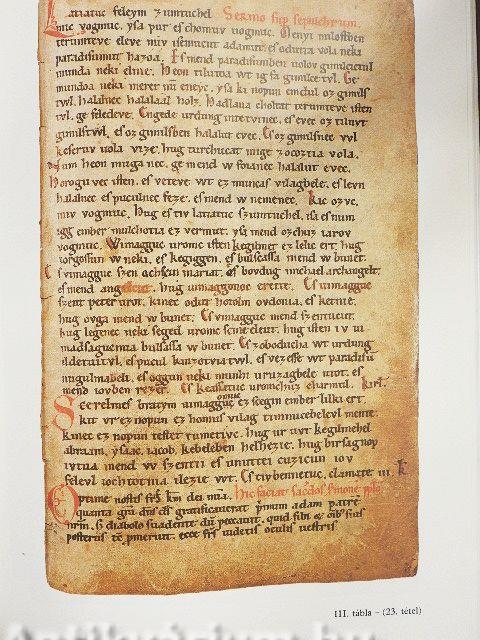 Latiatuc feleym zumtuchel Sermo sup sepulchrum.
mic vogmuc. ysa pur es chomuv uogmuc. Menyi milostben
terumteve eleve miv isemucut adamut. es odutta vola neki
paradisumut hazoa. Es mend paradisumben uolov gimilcictul
munda neki elnie. Heon tilutoa wt ig fa gimilce tvl. Ge
mundoa neki meret nu eneyc. ysa ki nopun emdul oz gimils
twl. halalnec halalaal holz. Hadlaua choltat terumteve isten
tvl. ge feledeve. Engede urdung intetvinec. es evec oz tiluvt
gimilstwl. es oz gimilsben halalut evec. Es oz gimilsnec vvl
keseruv uola vize. hug turchucat mige zocoztia vola.
Num heon muga nec. ge mend w foianec halalut evec.
Horogu vec isten. es veteve wt ez muncas vilagbele. es levn
halalnec es puculnec feze. es mend w nemenec. Kic ozvc.
miv vogmuc. Hug es tiv latiatuc szumtuchel. isa es num
igg ember mulchotia ez vermut. ysa mend ozchuz iarov
vogmuc. Wimagguc uromc isten kegilmet ez lelic ert. hug
iorgossun w neki. es kegiggen. es bulsassa mend w bunet.
Es vimagguc szen achscin mariat. es bovdug michael archangelt.
es mend angelcut. hug uimaggonoc erette. Es uimagguc
szent peter urot. kinec odut hotolm ovdonia. es ketnie.
hug ovga mend w bunet. Es vimagguc mend szentucut.
hug legenec neki seged uromc scine eleut. hug isten iv ui
madsaguc mia bulsassa w bunet. Es zoboducha wt urdung
ildetuitvl. es pucul kinzotviatwl. es vezesse wt paradisu
nugulmabeli. es oggun neki munhi uruzagbele utot. es
mend iovben rezet. Es keassatuc uromchuz charmul. Kirl.
Scerelmes bratym uimagguc omuc ez scegin ember lilki ert.
kit vr ez nopun ez homus vilag timnucebelevl mente.
kinec ez nopun testet tumetivc. hug ur uvt kegilmehel
abraam. ysaac. iacob. kebeleben helhezie. hug birsagnop
ivtva mend w szentii es unuttei cuzicun iov
felevl iochtotnia ilezie wt. Es tivbennetuc. clamate iii. k.